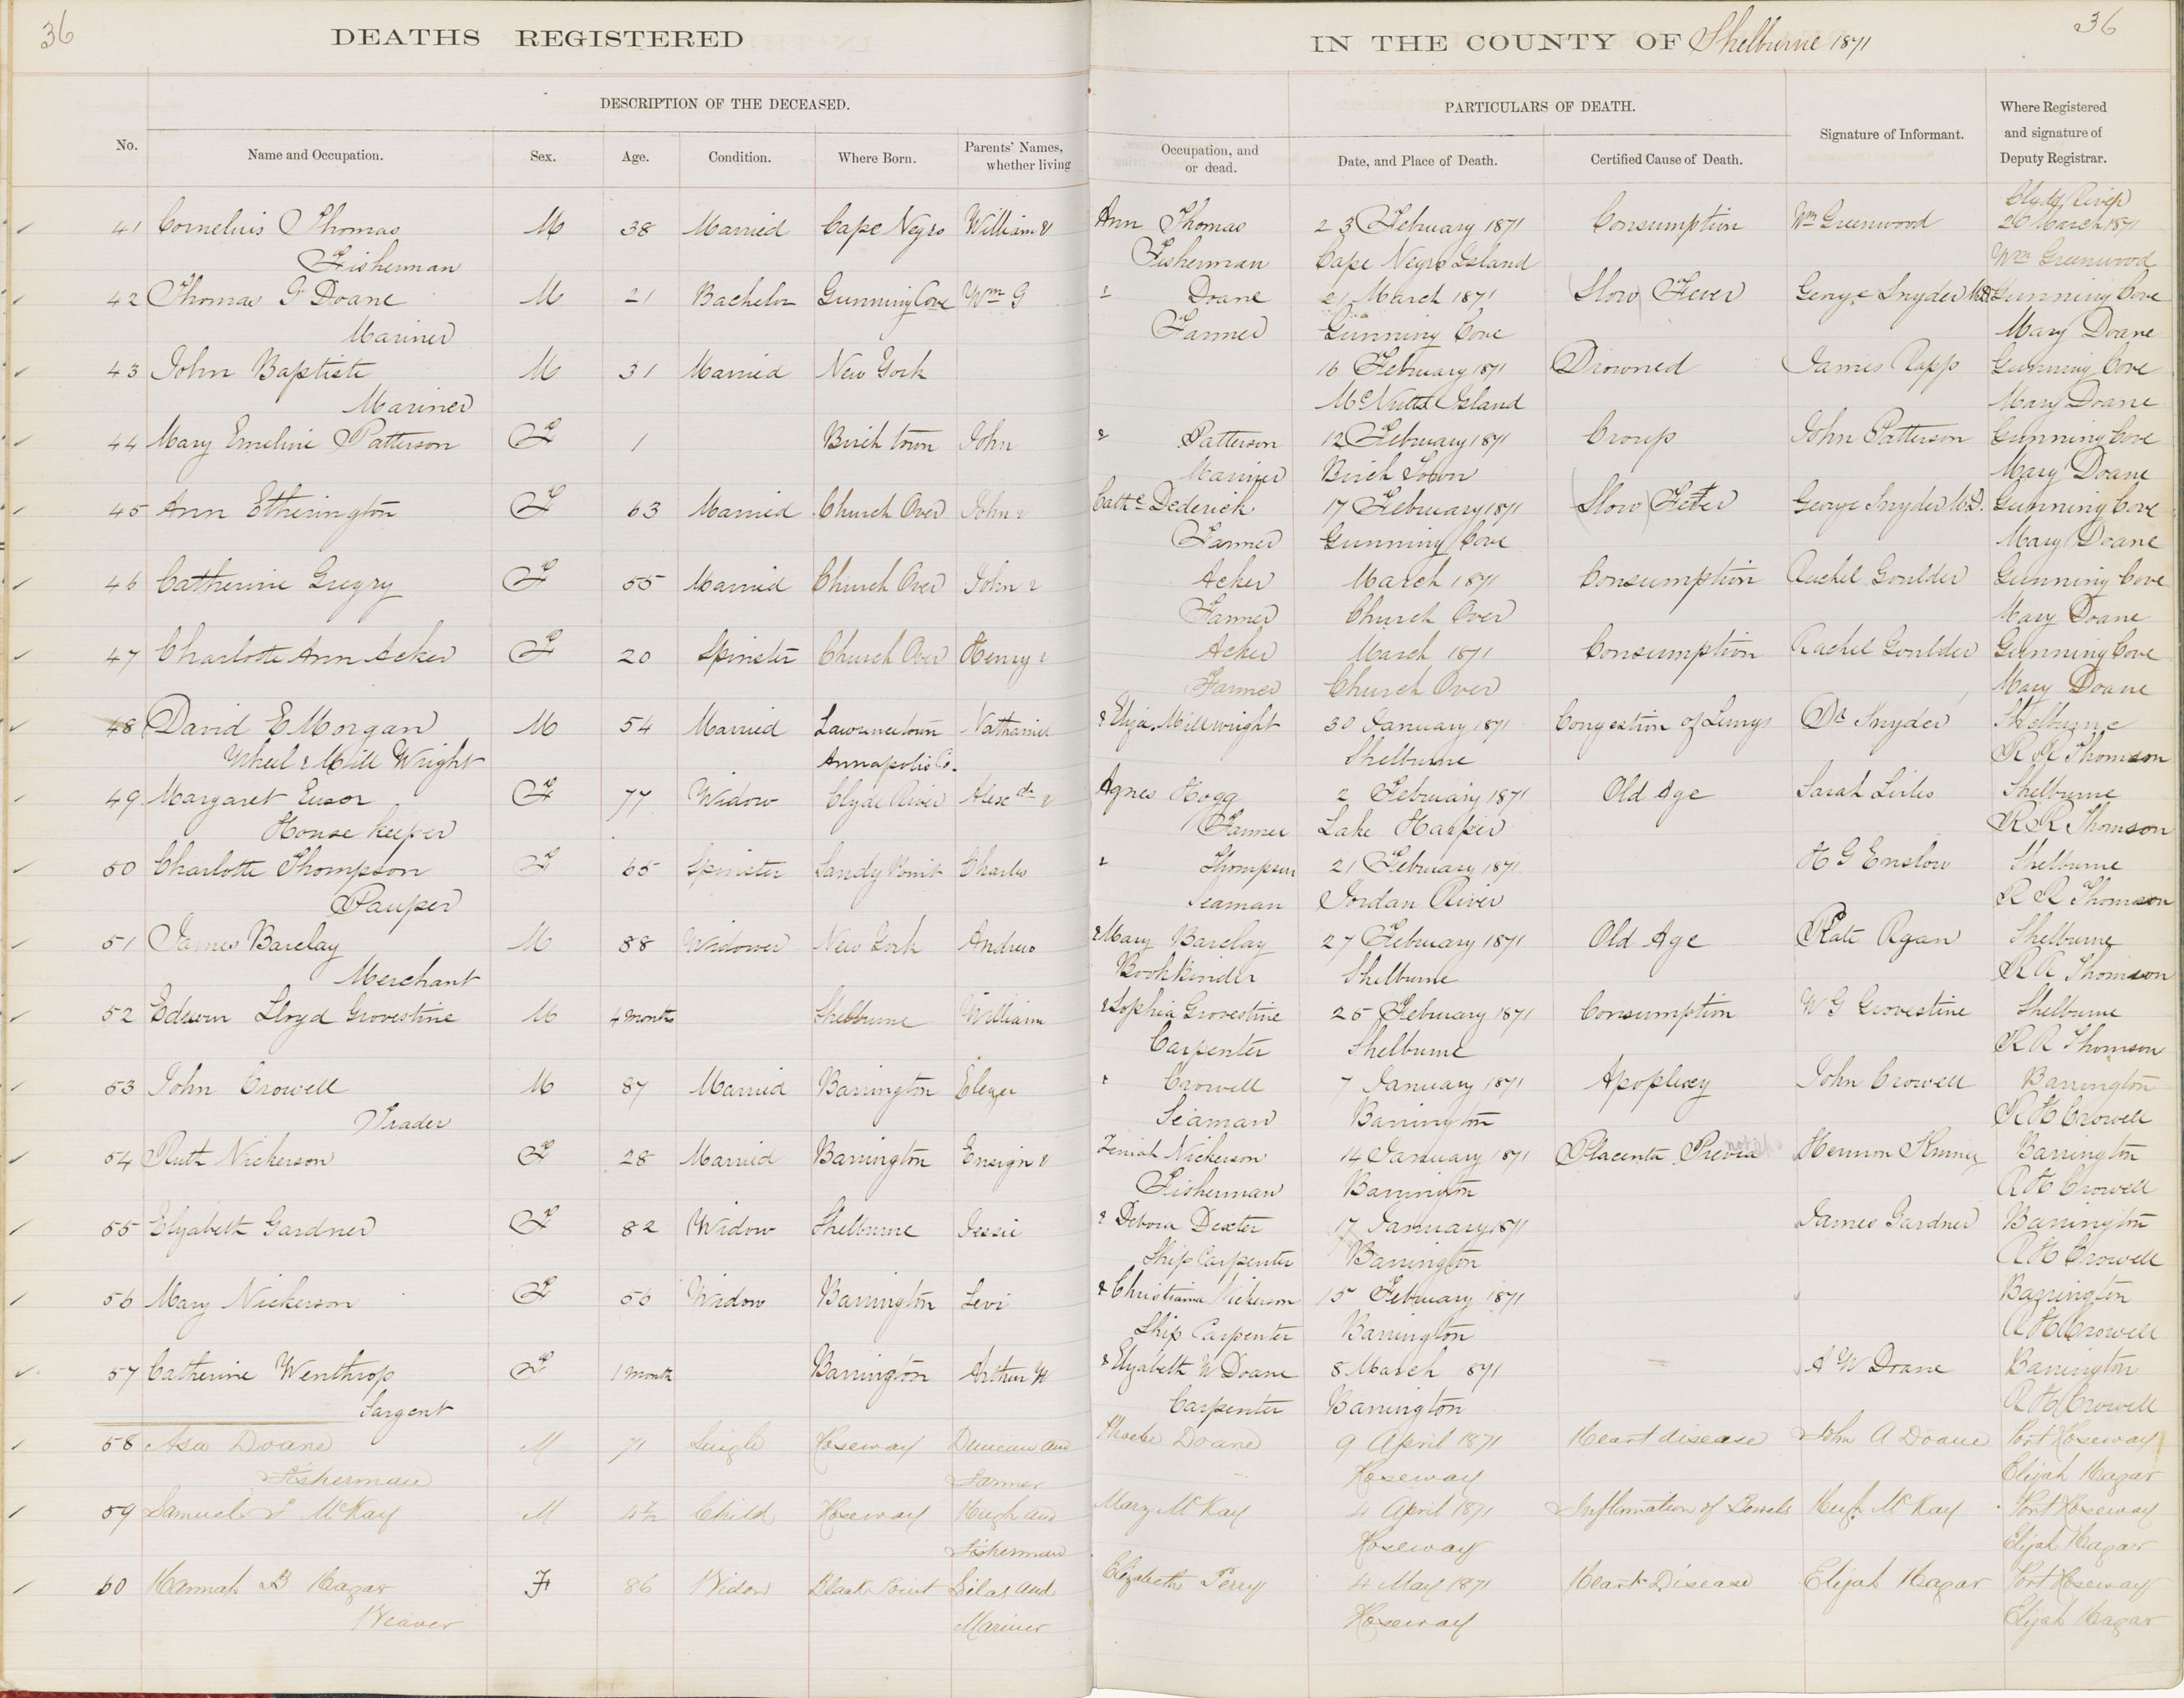 36
DEATHS REGISTERED IN THE COUNTY OF Shelburne 1871
36
DESCRIPTION OF THE DECEASED. PARTICULARS OF DEATH.
No. Name and Occupation. Sex. Age. Condition. Where Born. Parents' Names, whether living Occupation, and or dead. Date, and Place of Death. Certified Cause of Death. Signature of Informant. Where Registered and signature of Deputy Registrar.
Clyde River
41 Cornelius Thomas M 38 Married Cape Negro William & Ann Thomas 23 February 1871 Consumption Wm Greenwood 26 March 1871
Fisherman Fisherman Cape Negro Island Wm Greenwood
42 Thomas G Doane M 21 Bachelor Gunning Cove Wm G & Doane 21 March 1871 Slow Fever George Snyder M.D. Gunning Cove
Mariner Farmer Gunning Cove Mary Doane
43 John Baptiste M 31 Married New York 16 February 1871 Drowned James Rapp Gunning Cove
Mariner McNutts Island Mary Doane
44 Mary Emeline Patterson F 1 Birch town John & Patterson 12 February 1871 Croup John Patterson Gunning Cove
Mariner Birch Town Mary Doane
45 Ann Etherington F 63 Married Church Over John & Cathe Dederick 17 February 1871 Slow Fever George Snyder M.D. Gunning Cove
Farmer Gunning Cove Mary Doane
46 Catherine Gregry F 55 Married Church Over John & Acker March 1871 Consumption Rachel Goulder Gunning Cove
Farmer Church Over Mary Doane
47 Charlotte Ann Acker F 20 Spinster Church Over Henry & Acker March 1871 Consumption Rachel Goulder Gunning Cove
Farmer Church Over Mary Doane
48 David E Morgan M 54 Married Lawrencetown Nathaniel & Eliza. Millwright 30 January 1871 Congestion of Lungs Dr Snyder Shelburne
Wheel & Mill Wright Annapolis Co. Shelburne R R Thomson
49 Margaret F 77 Widow Clyde River Alexdr & Agnes Hogg 2 February 1871 Old Age Sarah Shelburne
House keeper Farmer Lake Harper R R Thomson
50 Charlotte Thompson F 65 Spinster Sandy Point Charles & Thompson 21 February 1871 H G Enslow Shelburne
Pauper Seaman Jordan River R R Thomson
51 James Barclay M 88 Widower New York Andrew & Mary Barclay 27 February 1871 Old Age Kate Ryan Shelburne
Merchant Bookbinder Shelburne R R Thomson
52 Edwin Lloyd Grovestine M 4 months Shelburne William & Sophia Grovestine 25 February 1871 Consumption W G Grovestine Shelburne
Carpenter Shelburne R R Thomson
53 John Crowell M 87 Married Barrington Elezer & Crowell 7 January 1871 Apoplexy John Crowell Barrington
Trader Seaman Barrington R H Crowell
54 Ruth Nickerson F 28 Married Barrington Ensign & Zeniah Nickerson 14 January 1871 Placenta Previa Hermon Kenney Barrington
Fisherman Barrington R H Crowell
55 Elizabeth Gardner F 82 Widow Shelburne Jessie & Debora Dexter 17 January 1871 James Gardner Barrington
Ship Carpenter Barrington R H Crowell
56 Mary Nickerson F 56 Widow Barrington Levi & Christiana Nickerson 15 February 1871 Barrington
Ship Carpenter Barrington R H Crowell
57 Catherine Wenthrop F 1 month Barrington Arthur W & Elizabeth W Doane 8 March 1871 A W Doane Barrington
Sargent Carpenter Barrington R H Crowell
58 Asa Doane M 71 Single Roseway Duncan and Phoebe Doane 9 April 1871 Heart disease John A Doane Port Roseway
Fisherman Farmer Roseway Elijah Hagar
59 Samuel McKay M 4½ Child Roseway Hugh and Mary McKay 4 April 1871 Inflamation of Bowels Hugh McKay Port Roseway
Fisherman Roseway Elijah Hagar
60 Hannah B Hagar F 86 Widow Black Point Silas and Elizabeth Perry 4 May 1871 Heart Disease Elijah Hagar Port Roseway
Weaver Mariner Roseway Elijah Hagar